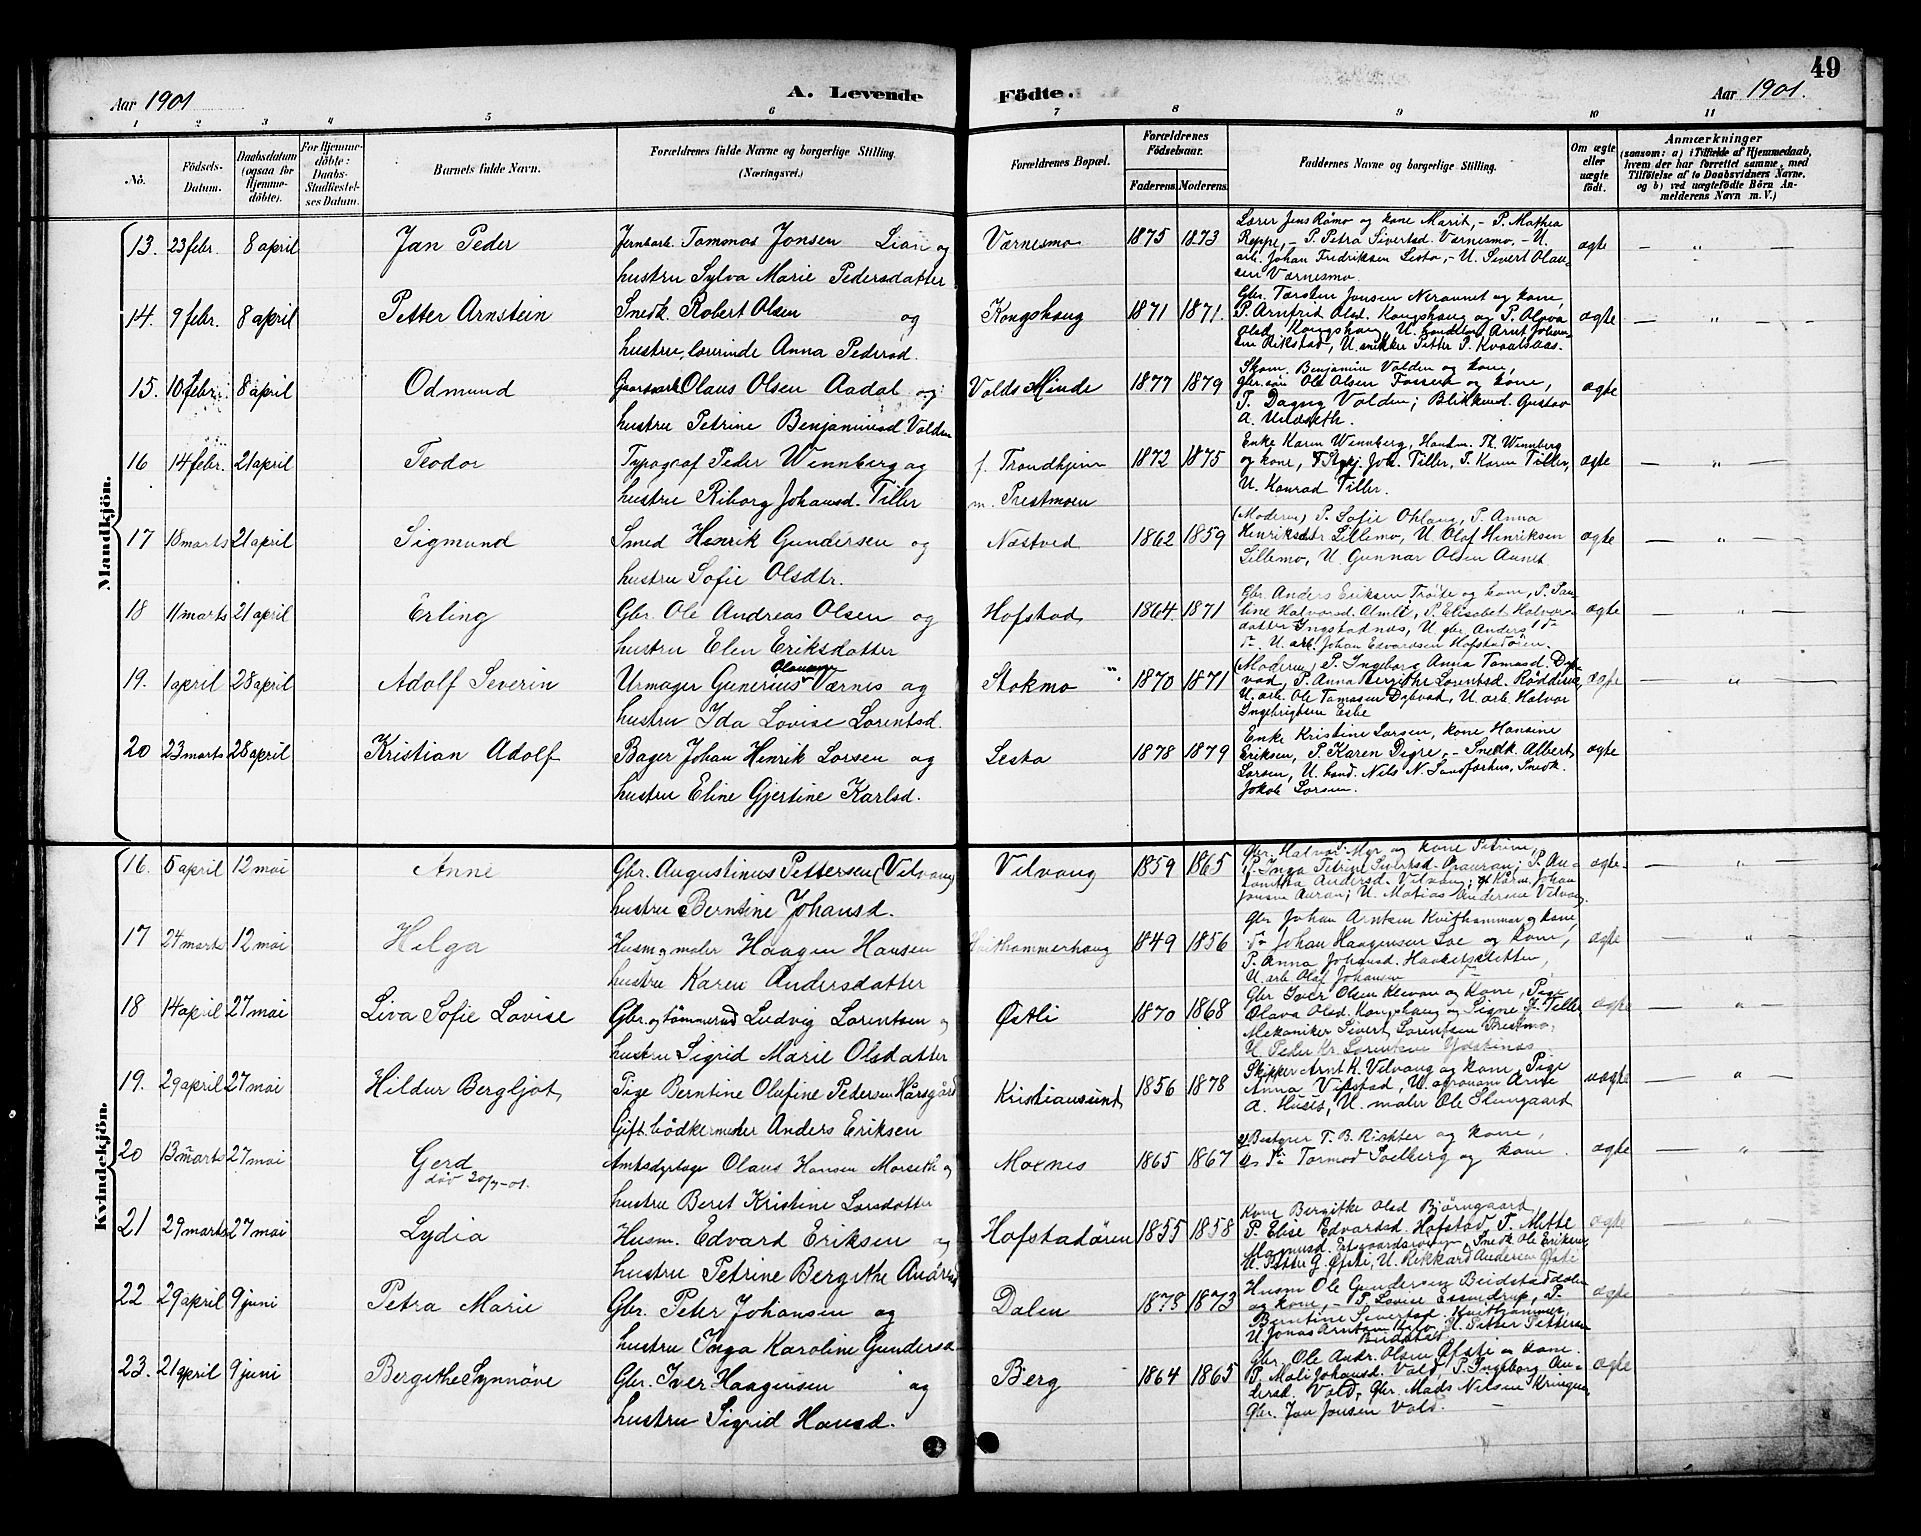 49
Aar 1901
A. Levende Födte.
Aar 1901.
1 2 3 4 5 6 7 8 9 10 11
No.
Födsels-Datum.
Daabsdatum (ogsaa for Hjemme-döbte).
For Hjemme-döbte: Daabs-Stadfæstel-ses Datum.
Barnets fulde Navn.
Forældrenes fulde Navne og borgerlige Stilling.
(Næringsvei.)
Forældrenes Bopæl.
Forældrenes Födselsaar.
Faderens. Moderens.
Faddernes Navne og borgerlige Stilling.
Om ægte eller uægte født.
Anmærkninger
(saasom: a) i Tilfælde af Hjemmedaab,
hvem der har forrettet samme, med
Tilföielse af to Daabsvidners Navne,
og b) ved uægtefödte Börn An-
melderens Navn m. V.)
Mandkjön.
13. 23 febr. 8 april Jan Peder Jernbarb. Tomonas Jonsen Lian og
hustru Sylva Marie Pedersdatter
Værnesmo 1875 1873
Lærer Jens Römo og kone Marit, - P. Mathea
Reppe, - P. Petra Sivertsd. Værnesmo, - U.
arb. Johan Fredriksen Sesta, - U. Sivert Olau-
sen Værnesmo.
ægte — " —
14. 9 febr. 8 april Petter Arnstein Snedk. Robert Olsen og
hustru, lærerinde Anna Pedersd.
Kongshaug 1871 1871.
Gbr. Torsten Jonsen Neraunet og kone,
P. Arnfrid Olsd. Kongshaug og P. Olava
Olsd. Kongshaug, U. handlbet. Arnt Johan-
sen Rikstad, U. snikker Petter P. Kvaalsaas.
ægte — " —
15. 10 febr. 8 april Odmund Gaardarb. Olaus Olsen Aadal og
hustru Petrine Benjaminsd. Valden
Volds Minde 1877 1879
Skom. Benjamin Valden og kone,
gbr.sön Ole Olsen Fossen og kone,
P. Dagny Valden; Blikksmd. Gustav
A.
ægte — " —
16 14 febr. 21 april Teodor Typograf Peder Wennberg og
hustru Riborg Johansd. Tiller
f. Trondhjem
m. Prestmoen
1872 1875
Enke Karen Wennberg, Handm. Th. Wennberg
og kone, Joh. Tiller, P. Karen Tiller,
U. Konrad Tiller.
ægte — " —
17 18 marts 21 april Sigmund Smed Henrik Gundersen og
hustru Sofie Olsdtr.
Næstved 1862 1859
(Moderen) P. Sofie Ohlaug, P. Anna
Henriksdtr Lillemo, U. Olaf Henriksen
Lillemo, U. Gunnar Olsen Aunet
ægte — " —
18 11 marts 21 april Erling Gbr. Ole Andreas Olsen og
hustru Elen Eriksdatter
Hofstad 1864. 1871
Gbr. Anders Eriksen Tröite og kone, P. Pau-
line Halvorsd. Almli, P. Elisabet Halvors-
datter Ingstadnæs, U. gbr. Anders do
do U. arb. Johan Edvardsen Hofstadören.
ægte — " —
19. 1 april 28 april Adolf Severin Urmager Gunerius Olausen Værnes og
hustru Ida Lovise Lorentsd.
Stokmo 1870 1871
(Moderen) P. Ingeborg Anna Tomasd. Dyb-
vad, P. Anna Bergithe Lorentsd. Röddesva,
U. arb. Ole Tomasen Dybvad, U. arb. Halvor
Ingebrigtsen Eslie
ægte — " —
20 23 marts 28 april Kristian Adolf Bager Johan Henrik Larsen og
hustru Eline Gjertine Karlsd.
Sesta 1878 1879
Enke Kristine Larsen, kone Hansine
Eriksen, P. Karen Digre, - Snedk. Albert
Larsen, U. hand. Nils N. Sandfærhus, Snedk.
Jakob Larsen.
ægte — " —
Kvindekjön.
16. 5 april 12 mai Anne Gbr. Augustinus Pettersen (Vilvang)
hustru Berntine Johansd.
Vilvang 1859 1865
Gbr. Halvor Myr og kone Petrine,
P. Inga Petrine Sivertsd. P. An-
Andersd. Vilvang; Johan
Jensen Auran; U. Matias Andersen Vilvang.
ægte — " —
17 24 marts 12 mai Helga Husm. og maler Haagen Hansen
hustru Karen Andersdatter
Kvithammerhaug 1849 1856
Gbr. Johan Arntsen Kvithammar og kone,
do Johan Haagensen Loe og kone,
P. Anna Johansd. Haakesesletten,
U. arb. Olaf Johansen
ægte — " —
18 14 april 27 mai Liva Sofie Lovise Gbr. og tömmermd Ludvig Lorentsen og
hustru Sigrid Marie Olsdatter
Östli 1870 1868
Gbr Iver Olsen Klevan og kone, Pige
Olava Olsd. Kongshaug og Signe J. Tiller
Mekaniker Sivert Lorentsen Prestmo,
U. Peder Kr. Lorentsen Ydstines.
ægte — " —
19. 29 april 27 mai Hildur Bergljot Pige Berntine Olufine Pedersen Hårsgård
Gift bödkermester Anders Eriksen
Kristiansund 1856 1878
Skipper Arnt K. Vilvang og kone, Pige
Anna Vifstad, U. agronom Arne
A. Husås, U. maler Ole Slungaard
uægte — " —
20 13 marts 27 mai Gerd
död 20/7-01.
Amtsdyrlæge Olaus Hansen Morseth og
hustru Beret Kristine Larsdatter
Moxnes 1865 1867
Bestyrer T. B. Richter og kone,
do Tormod Solberg og kone.
ægte — " —
21 29 marts 27 mai Lydia Husm. Edvard Eriksen og
hustru Petrine Bergithe Andersd
Hofstadören 1855 1858
Kone Bergitke Olsd Björngaard,
P. Elise Edvardsd. Hofstad, P. Mette
Magnusd. Snedk Ole Eriksen,
U. Petter G. Öfsti, U. Rikkard Andersen Öfsti
ægte — " —
22 29 april 9 juni Petra Marie Gbr. Peter Johansen og
hustru Inga Karoline Gundersd.
Dalen 1875 1873
Husm Ole Gundersen Beidstaddalen
og kone, - P. Lovise Essendrup, P.
Berntine Sivertsd. Kvithammer,
U. Jonas Arntsen U. Petter Pettersen
ægte — " —
23. 21 april 9 juni Bergithe Synnöve Gbr. Iver Haagensen og
hustru Sigrid Hansd.
Berg 1864 1865
Gbr. Ole Andr. Olsen Öfsti og kone.
P. Mali Johansd. Vold, P. Ingeborg An-
dersd. Vold, Gbr. Mads Nilsen Kringen,
Gbr. Jon Jonsen Vold.
ægte — " —